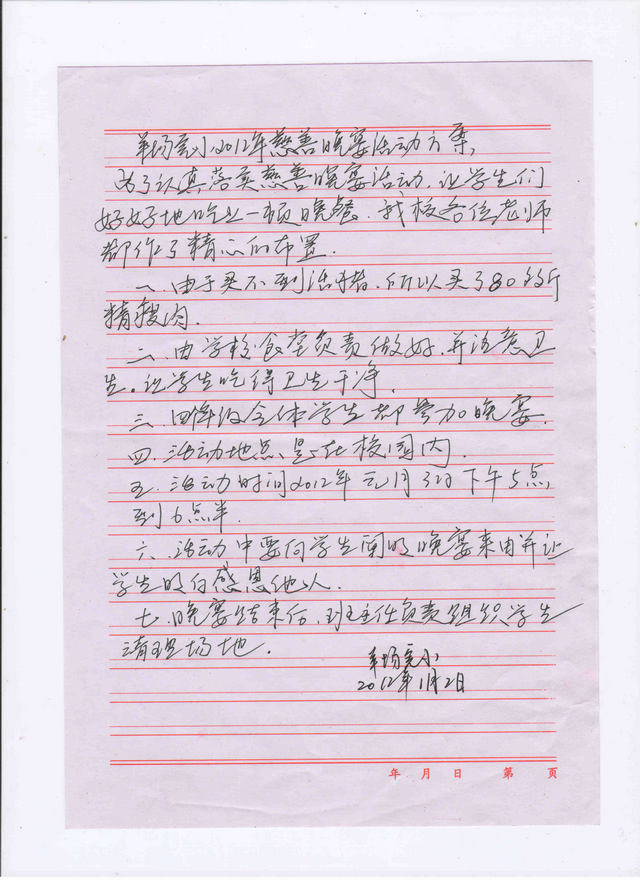 羊场完小2012年慈善晚宴活动方案
为了认真落实慈善晚宴活动，让学生们
好好地吃上一顿晚餐，我校各位老师
都作了精心的布置.
一、由于买不到活猪，所以买了80多斤
精瘦肉.
二、由学校食堂负责做好，并注意卫
生。让学生吃得卫生干净.
三、四年级全体学生都参加晚宴.
四、活动地点是在校园内.
五、活动时间2012年元月3日下午5点
到6点半.
六、活动中要向学生阐明晚宴来由并让
学生明白感恩他人.
七、晚宴结束后，班主任负责组织学生
清理场地.
羊场完小
2012年1月2日
年 月 日 第 页